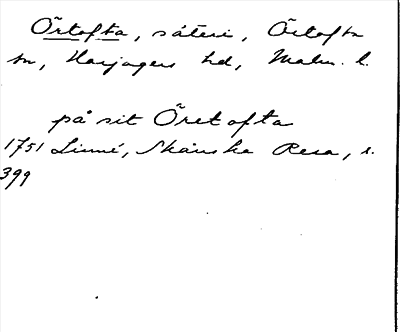 Örtofta, säteri, Örtofta
sn, Harjagers hd, Malm. l.
på sit Öretofta
1751 Linné, Skånska Resa, s.
399